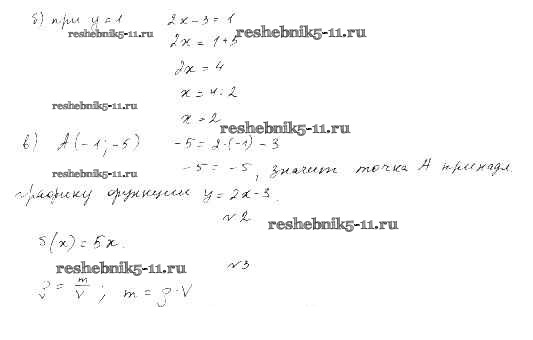 б) при y = 1 2x - 3 = 1
reshebnik5-11.ru reshebnik5-11.ru
2x = 1 + 3
2x = 4
x = 4 : 2
reshebnik5-11.ru
x = 2
reshebnik5-11.ru
в) A(-1; -5) -5 = 2·(-1) - 3
reshebnik5-11.ru -5 = -5, значит точка A принадл.
графику функции y = 2x - 3.
№2
reshebnik5-11.ru
S(x) = 5x.
reshebnik5-11.ru №3
ρ = m/V ; m = ρ·V